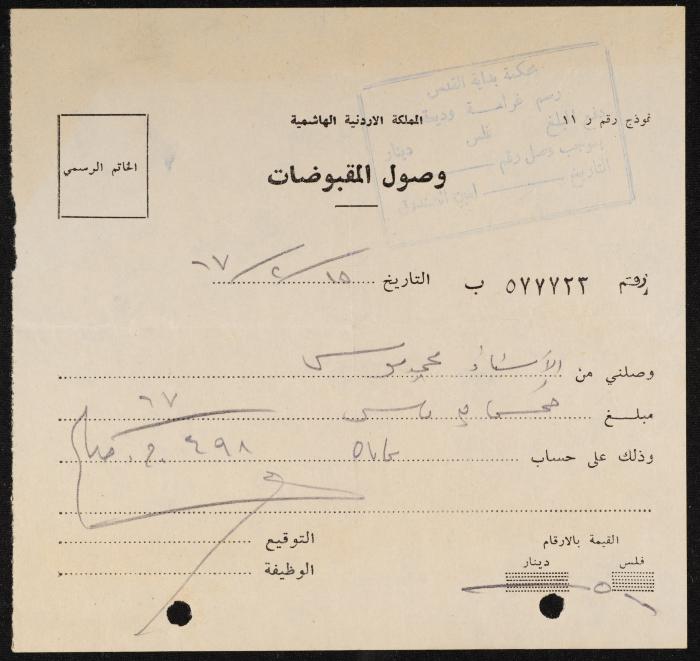 محكمة بداية القدس
رسم غرامة وديعة
دفع المبلغ فلس دينار
بموجب وصل رقم
التاريخ امين الصندوق
نموذج رقم ر ١١
المملكة الاردنية الهاشمية
الخاتم الرسمي
وصول المقبوضات
رقم ٥٧٧٧٢٣ ب التاريخ ١٥/٢/٦٧
وصلني من الأستاذ محمد موسى
مبلغ
٦٧
وذلك على حساب ٤٩٨
القيمة بالارقام
التوقيع
فلس دينار
الوظيفة